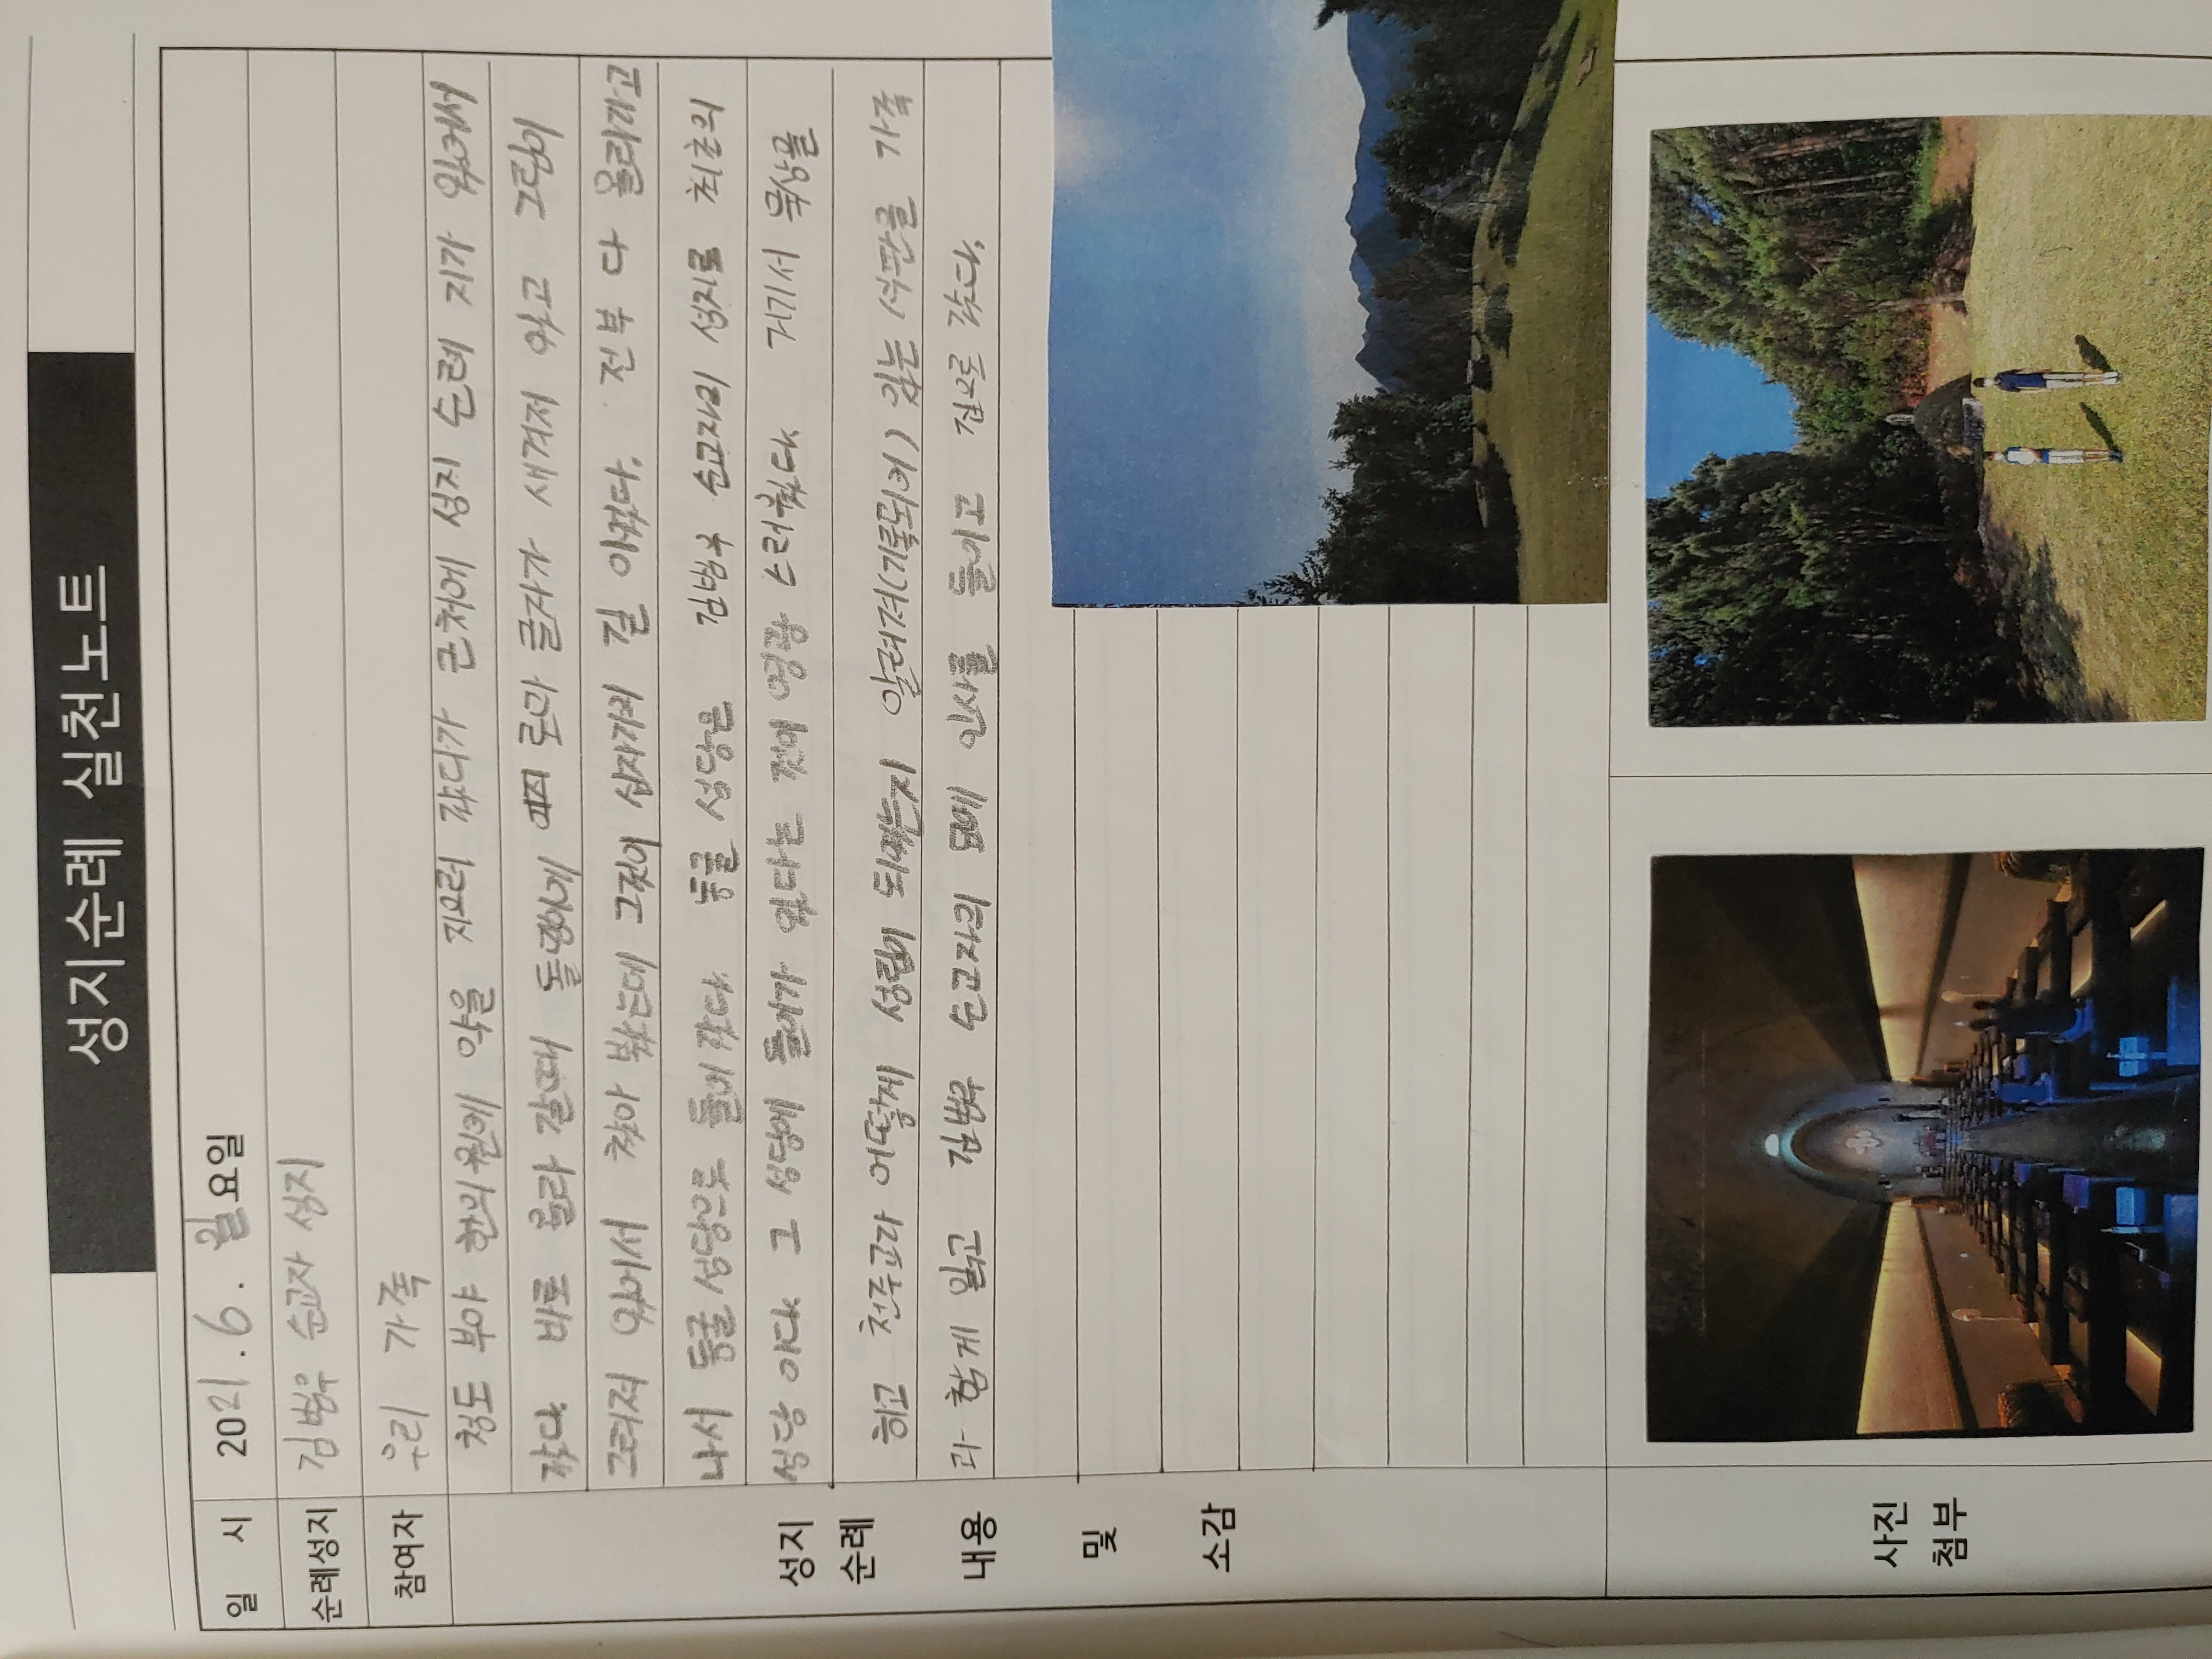 성지순례 실천노트
일 시 2021 . 6 . 월요일
순례성지 김범우 순교자 성지
참여자 우리 가족
청도 부야 한의원에 약을 지으러 갔다가 근처에 성지 순례 지가 있어서
갔다. 바로 올라 갈때 돌덩이에 로마 글자가 새겨져 있고 그림이
그려져 있어서 찾아 봤는데 그것이 십자가의 길 이었다. 전부 다 올라가고
나서 동굴 성당으로 들어 갔다. 동굴 성당은 김범우 순교자의 성지로 최초의
성당 이다. 그 성당에 들어가 있다는 것이 영광 스러웠다. 거기서 묵상을
하고 천주교가 어떻게 성립이 되었는지 알려져(기록되어) 있는 석판글 가족
과 함께 읽고 김범우 순교자의 묘에 인사를 들이고 집으로 갔다.
성지
순례
내용
및
소감
사진
첨부